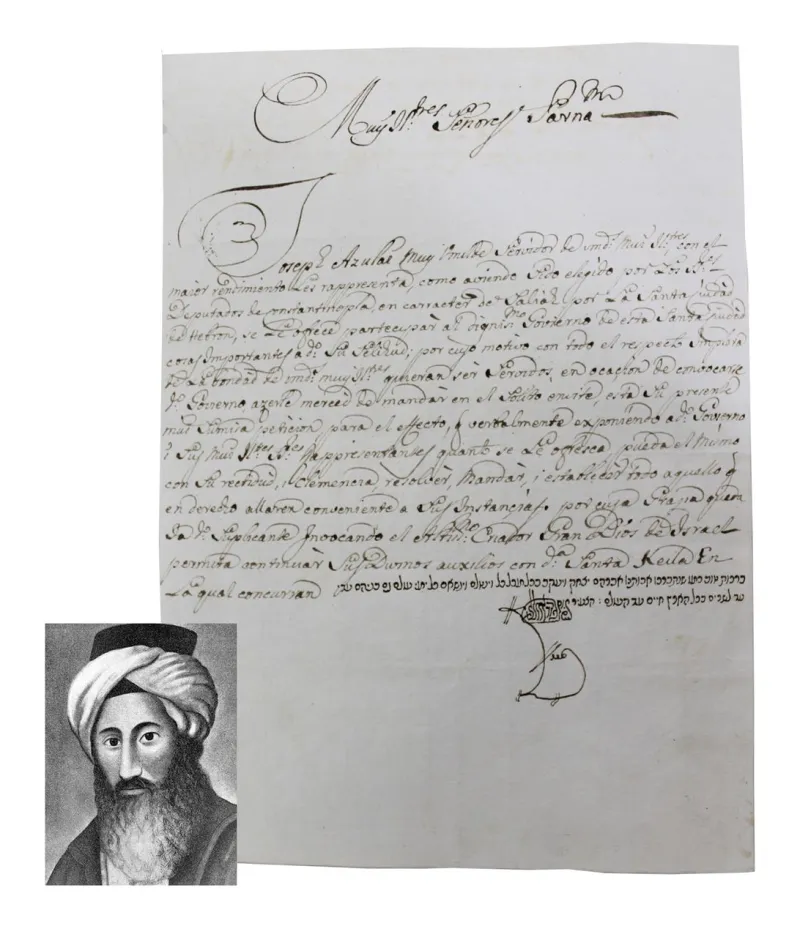 Muy Il.tres Señores Parna.m
Joseph Azulai Muy Umilde Servidor de vmds Muy Il.tres con el
maior rendimiento Les rappresenta, como aviendo Sido elegido por Los SS.res
Deputados de Constantinopla, en carracter de Saliah por La Santa ciudad
de Hebron, se Le ofrece partecipar al dignis.mo Governo de esta Santa ciudad
cosas Importantes a d.o Su Selihud; por cuyo motivo con todo el respecto Implora
de La bondad de vmds muy Il.tres quieran ser Servidos, en ocacion de convocarse
d.o Governo azerle merced de mandar en el Solito envite esta Su presente
mas Sumisa peticion para el effecto, q verbalmente exponiendo a d.o Governo
i Sus Muy Il.tres SS.res Rappresentantes quanto se Le ofresca, pueda el Mismo
con Su rectitud, i Clemencia, resolver, Mandar, i establecer todo aquello q
en derecho allaren conveniente a Sus Instancias, por cuya Grazia quedan
do d.o Suplicante Invocando el Criador Gran Dios de Israel
permita continuar Sus Divinos auxilios con d.a Santa Keila En
La qual concurran